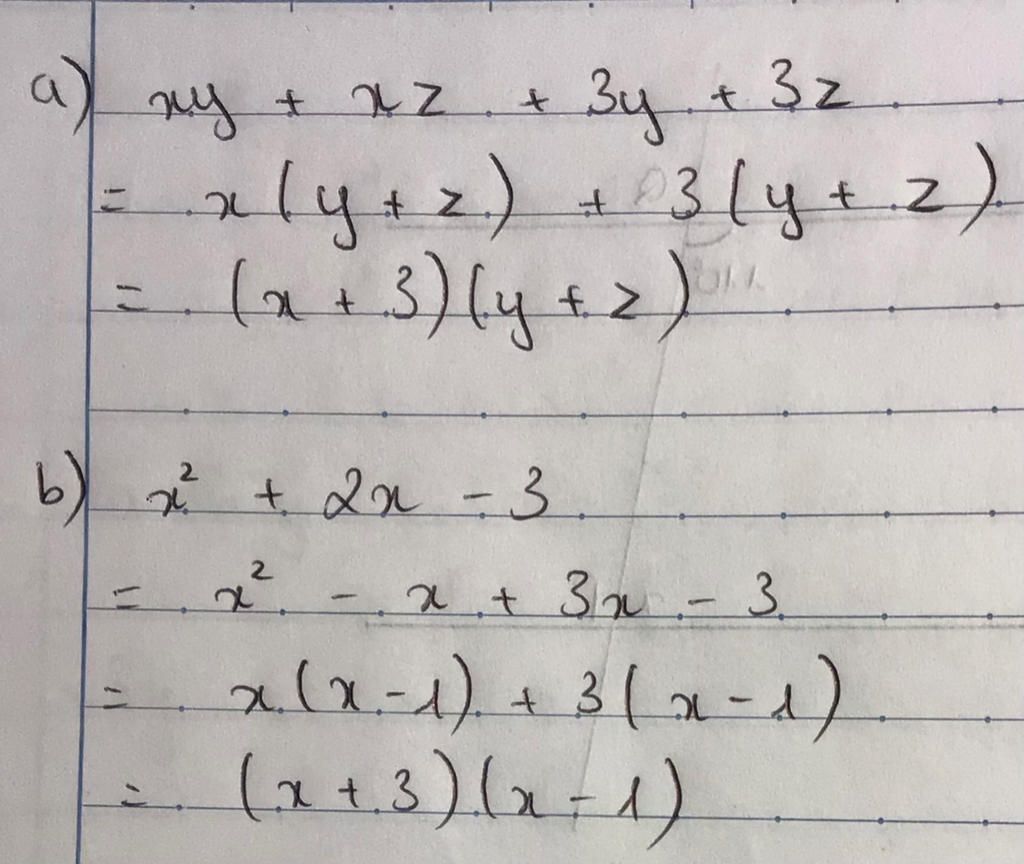 a) xy + xz + 3y + 3z
= x(y + z) + 3(y + z)
= (x + 3)(y + z)
b) x² + 2x - 3
= x² - x + 3x - 3
= x(x - 1) + 3(x - 1)
= (x + 3)(x - 1)